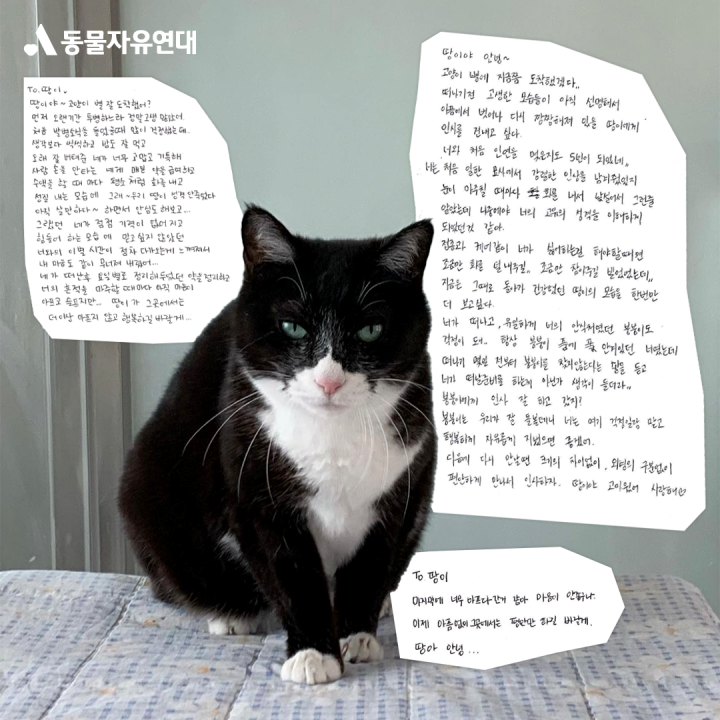 동물자유연대
To. 땅이.
땅이야~ 고양이 별 잘 도착했어?
먼저 오랜기간 투병하느라 정말 고생 많았어.
처음 발병소식을 들었을때 많이 걱정했는데..
생각보다 씩씩하고 밥도 잘 먹고
오래 잘 버텨준 네가 너무 고맙고 기특해
사람 손을 안타는 애께 매번 약을 급여하고
수액을 할 때 마다 평소처럼 화를 내고
성질 내는 모습에 그래~ 우리 땅이 성격 안죽었다
아직 살만하다~ 하면서 안심도 해보고...
그랬던 네가 점점 기력이 없어지고
힘들어 하는 모습에 믿고싶지 않았던
너와의 이별 시간이 점차 다가오는게 느껴져서
내 마음도 같이 무너져 내렸어...
네가 떠난후 요일별로 정리해두었던 약을 정리하고
너의 흔적을 마주할 때마다 아직 마음이
아프고 슬프지만... 땅이가 그곳에서는
더이상 아프지 않고 행복하길 바랄게...
땅이야 안녕~
고양이 별에 지금쯤 도착했겠다..
떠나기전 고생한 모습들이 아직 선명해서
아픔에서 벗어나 다시 깜깜해져 있을 땅이에게
인사를 건네고 싶다.
너와 처음 인연을 맺은지도 5년이 되었네..
너는 처음 입한 묘사에서 강렬한 인상을 남겨줬었지
눈이 마주칠 때마다 화를 내서 낯설어서 그런줄
알았는데 나중에야 너의 고유의 성격을 이해하게
되었던것 같다.
전용과 케어같이 네가 싫어하는걸 해야할때면
조금만 화를 덜 내주길.. 조금만 참아주길 빌었었는데..
지금은 그때로 돌아가 건강했던 땅이의 모습을 한번만
더 보고싶다.
너가 떠나고, 유일하게 너의 안식처였던 봉봉이도
걱정이 돼.. 항상 봉봉이 품에 폭 안겨있던 너였는데
떠나기 몇일 전부터 봉봉이를 찾지않는다는 말을 듣고
너가 떠날준비를 하는지 이런가 생각이 들더라..
봉봉이에게 인사 잘 하고 갔지?
봉봉이는 우리가 잘 돌볼테니 너는 여기 걱정일랑 말고
행복하게 자유롭게 지냈으면 좋겠어.
다음에 다시 만날땐 크기의 차이없이, 외형의 구분없이
편안하게 만나서 인사하자. 땅이야 고마웠어 사랑해♡
To 땅이
마지막에 너무 아프다 간거 같아 마음이 안좋구나.
이제 아픔없이 그곳에서는 편안만 하길 바랄게.
땅아 안녕...